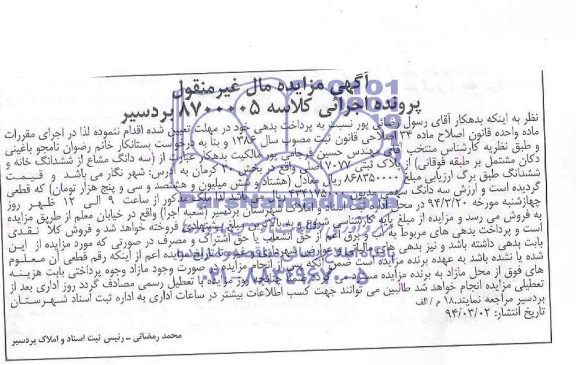 آگهی مزایده مال غیرمنقول
پرونده اجرائی کلاسه ۸۷۰۰۰۰۵ بردسیر
نظر به اینکه بدهکار آقای رسول رضائی پور نسبت به پرداخت بدهی خود در مهلت تعیین شده اقدام ننموده لذا در اجرای مقررات
ماده واحده قانون اصلاح ماده ۳۴ اصلاحی قانون ثبت مصوب سال ۱۳۸۶ و بنا به درخواست بستانکار خانم رضوان نامجو باغینی
و طبق نظریه کارشناس منتخب آقای مهندس حسین فرجامی پور مالکیت بدهکار عبارت از (سه دانگ مشاع از ششدانگ خانه و
دکان مشتمل بر طبقه فوقانی) از پلاک ثبتی واقع در بخش کرمان به آدرس: شهر نگار می باشد و قیمت
ششدانگ طبق برگ ارزیابی مبلغ ریال معادل (هشتاد و شش میلیون و هشتصد و سی و پنج هزار تومان) که قطعی
گردیده است و ارزش سه دانگ سهمی مدیون ریال
چهارشنبه مورخه ۹۴/۳/۲۰ در محل اداره ثبت اسناد و املاک شهرستان بردسیر (شعبه اجرا) واقع در خیابان معلم از طریق مزایده
به فروش می رسد و مزایده از مبلغ پایه کارشناسی شروع و به بالاترین مبلغ پیشنهادی فروخته خواهد شد و فروش کلا نقدی
است و پرداخت بدهی های مربوط به آب و برق اعم از حق انشعاب یا حق اشتراک و مصرف در صورتی که مورد مزایده از این
بابت بدهی داشته باشد و نیز بدهی های مالیاتی و عوارض شهرداری و غیره تا تاریخ مزایده اعم از اینکه رقم قطعی آن معلوم
شده یا نشده باشد به عهده برنده مزایده است ضمن آنکه پس از انجام مزایده در صورت وجود مازاد وجوه پرداختی بابت هزینه
های فوق از محل مازاد به برنده مزایده مسترد می گردد ضمنا چنانچه روز مزایده با تعطیل رسمی مصادف گردد روز اداری بعد از
تعطیلی مزایده انجام خواهد شد طالبین می توانند جهت کسب اطلاعات بیشتر در ساعات اداری به اداره ثبت اسناد شهرستان
بردسیر مراجعه نمایند.۱۸ م/الف
تاریخ انتشار: ۹۴/۰۳/۰۲
محمد رمضانی ـ رئیس ثبت اسناد و املاک بردسیر
ParsNamadData